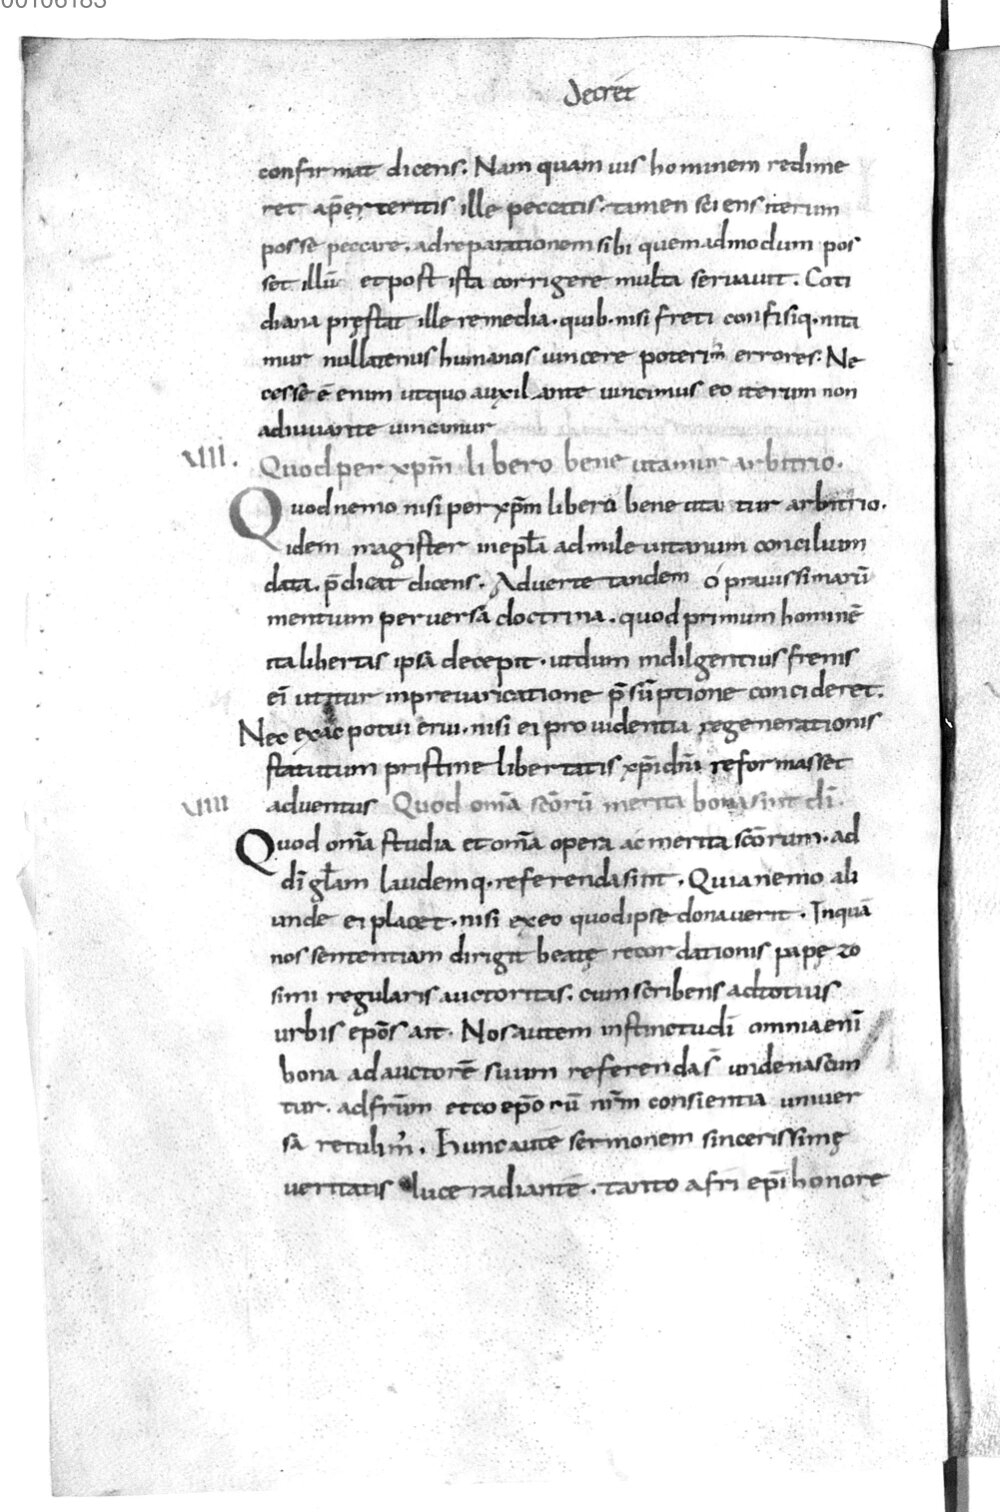 00106183
decret
confirmat dicens. Nam quam uis hominem redime
ret ap̄ęrteritis ille peccatis. tamen sciens iterum
posse peccare. adreparationem sibi quemadmodum pos
set illū et post ista corrigere multa seruauit. Coti
diana pręstat ille remedia. quib. nisi freti confisiq. nita
mur nullatenus humanos uincere poterim̄ errores. Ne
cesse ē enim utquo auxiliante uincimus eo iterum non
adiuuante uincimur
VIII. Quod per xp̄m libero bene utamur arbitrio.
Quod nemo nisi per xp̄m libero bene uta tur arbitrio.
idem magister in epl̄a ad mileuitanum concilium
data. p̄dicat dicens. Aduerte tandem o prauissimarū
mentium peruersa doctrina. quod primum hominē
ita libertas ipsa decepit. utdum indilgentius frenis
ei utitur inpreuaricatione p̄sūptione concideret.
Nec exac potui erui. nisi ei prouidentia regenerationis
statutum pristine libertatis xp̄idn̄i reformasset
VIIII aduentus Quod om̄a sc̄orū merita bona sint dī.
Quod om̄a studia et om̄a opera ac merita sc̄orum. ad
dī gl̄am laudemq. referenda sint. Quia nemo ali
unde ei placet. nisi exeo quod ipse donauerit. Inquā
nos sententiam dirigit beatę recordationis papę zo
simi regularis auctoritas. cum scribens adtotius
urbis ep̄os ait. Nos autem instinctu dī omnia enī
bona ad auctorē suum referendas̄ undenascun
tur. adfrūm et coep̄o rū nr̄m consientia uniuer
sa retulim̄. Hunc autē sermonem sincerissimę
ueritatis luce radiantē. tanto afri ep̄i honore